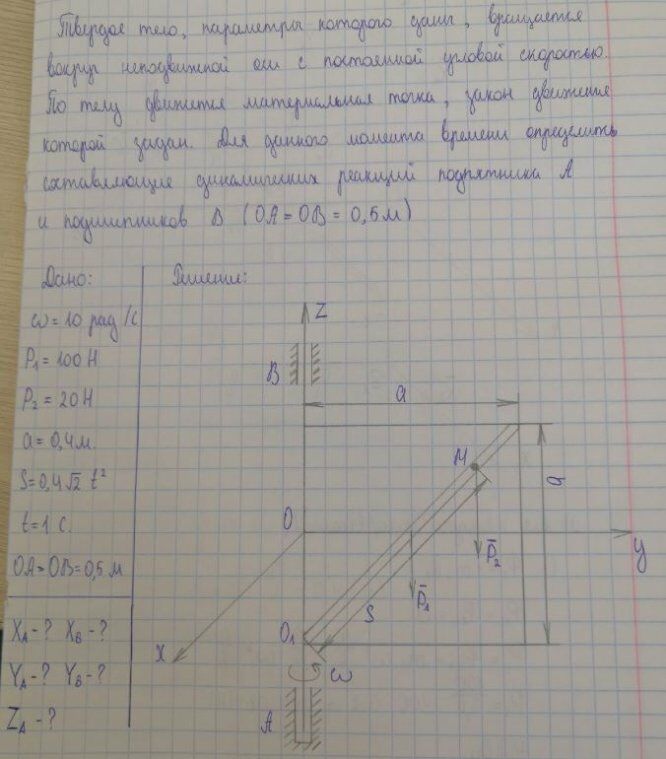 Твердое тело, параметры которого даны, вращается
вокруг неподвижной оси с постоянной угловой скоростью.
По телу движется материальная точка, закон движения
которой задан. Для данного момента времени определить
составляющие динамических реакций подпятника A
и подшипников B (OA = OB = 0,5 м)
Дано:
ω = 10 рад/с
P₁ = 100 Н
P₂ = 20 Н
a = 0,4 м.
S = 0,4√2 t²
t = 1 c.
OA = OB = 0,5 м
X_A - ? X_B - ?
Y_A - ? Y_B - ?
Z_A - ?
Решение:
Z
B
a
M
a
O
y
P̄₂
P̄₁
S
O₁
X
ω
A